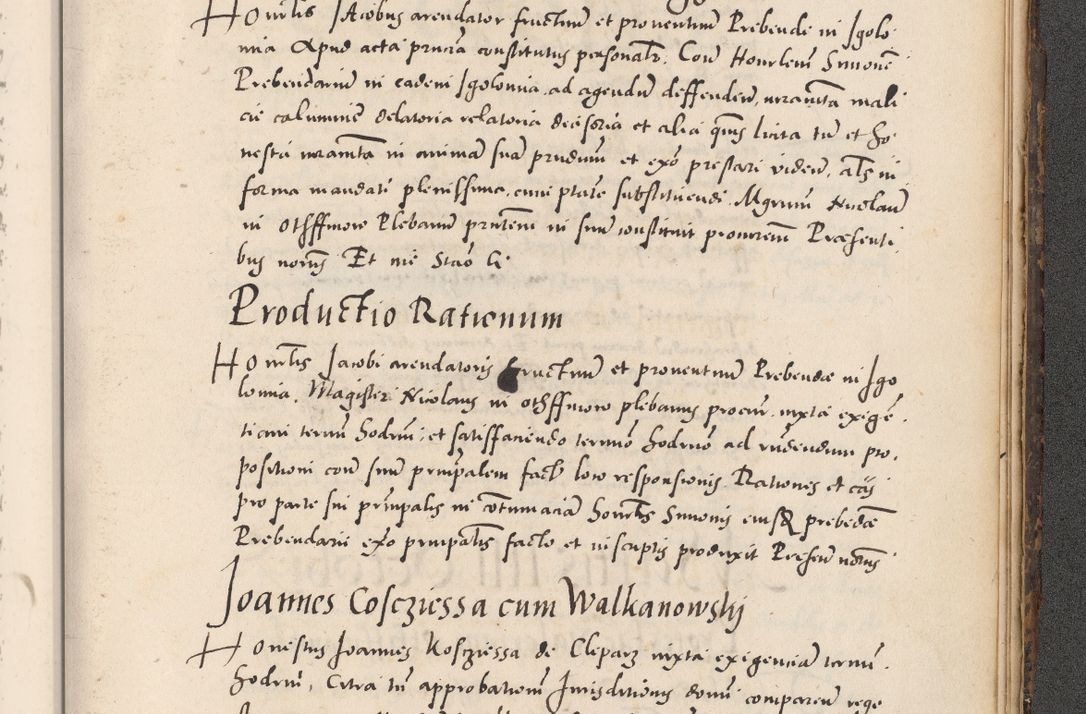 Honestus Jacobus arendator fructuum et proventuum Prebende in Jgolo
mia Apud acta pricia constitutus personalr. Con Honrlem Simonē
Prebendarium in eadem Jgolomia ad agendum deffendenđ, mali
cie calumnie delatoria relatoria decisoria et alia licita tn et ho
nesta in animam suā et exō prestari vidend, als in
forma mandati plenissima, cum ptate substituendi. Mgrum Nicolaum
in Othffinow Plebanum in suum constituit procurem Presenti
bus notīs Et me Stao &
Productio Rationum
Honrlis Jacobi arendatoris fructuum et proventuum Prebendæ in Jgo
lomia. Magister Nicolaus in othffinow plebanus procur. iuxta exigen.
tiam termi hodrni, et satisffaciendo termō hodrnō ad pro.
positioni con suum prncipalem facto loco responsionis Rationes et
pro parte sui prncipalis in cōtumaciā honrlis Simonis eiusq prebēdæ
Prebendarii exō prncipalis facto et in scriptis produxit Presen notīs
Joannes Coscziessa cum Walkanowskij
Honestus Joannes Kosczessa de Cleparz iuxta exigenciam termi.
hodrni, Citra tn approbationem Jurisditionis domi comparen rege